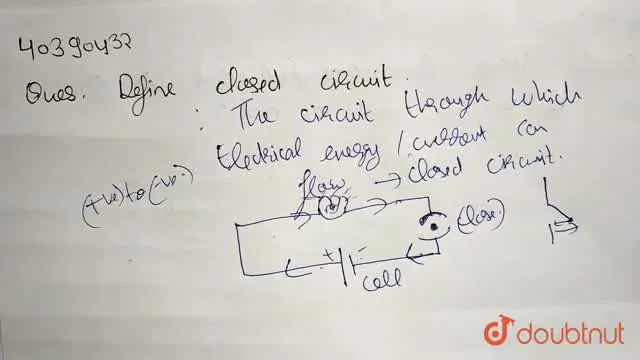 40390432
Ques. Define closed circuit.
: The circuit through which
Electrical energy / current can
flow → closed circuit.
(+ve) to (-ve)
(close)
+ -
cell
doubtnut